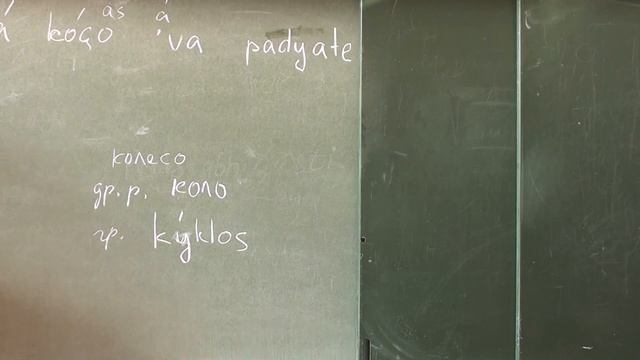 as á
kóço 'va padyate
колесо
др.р. коло
гр. kýklos